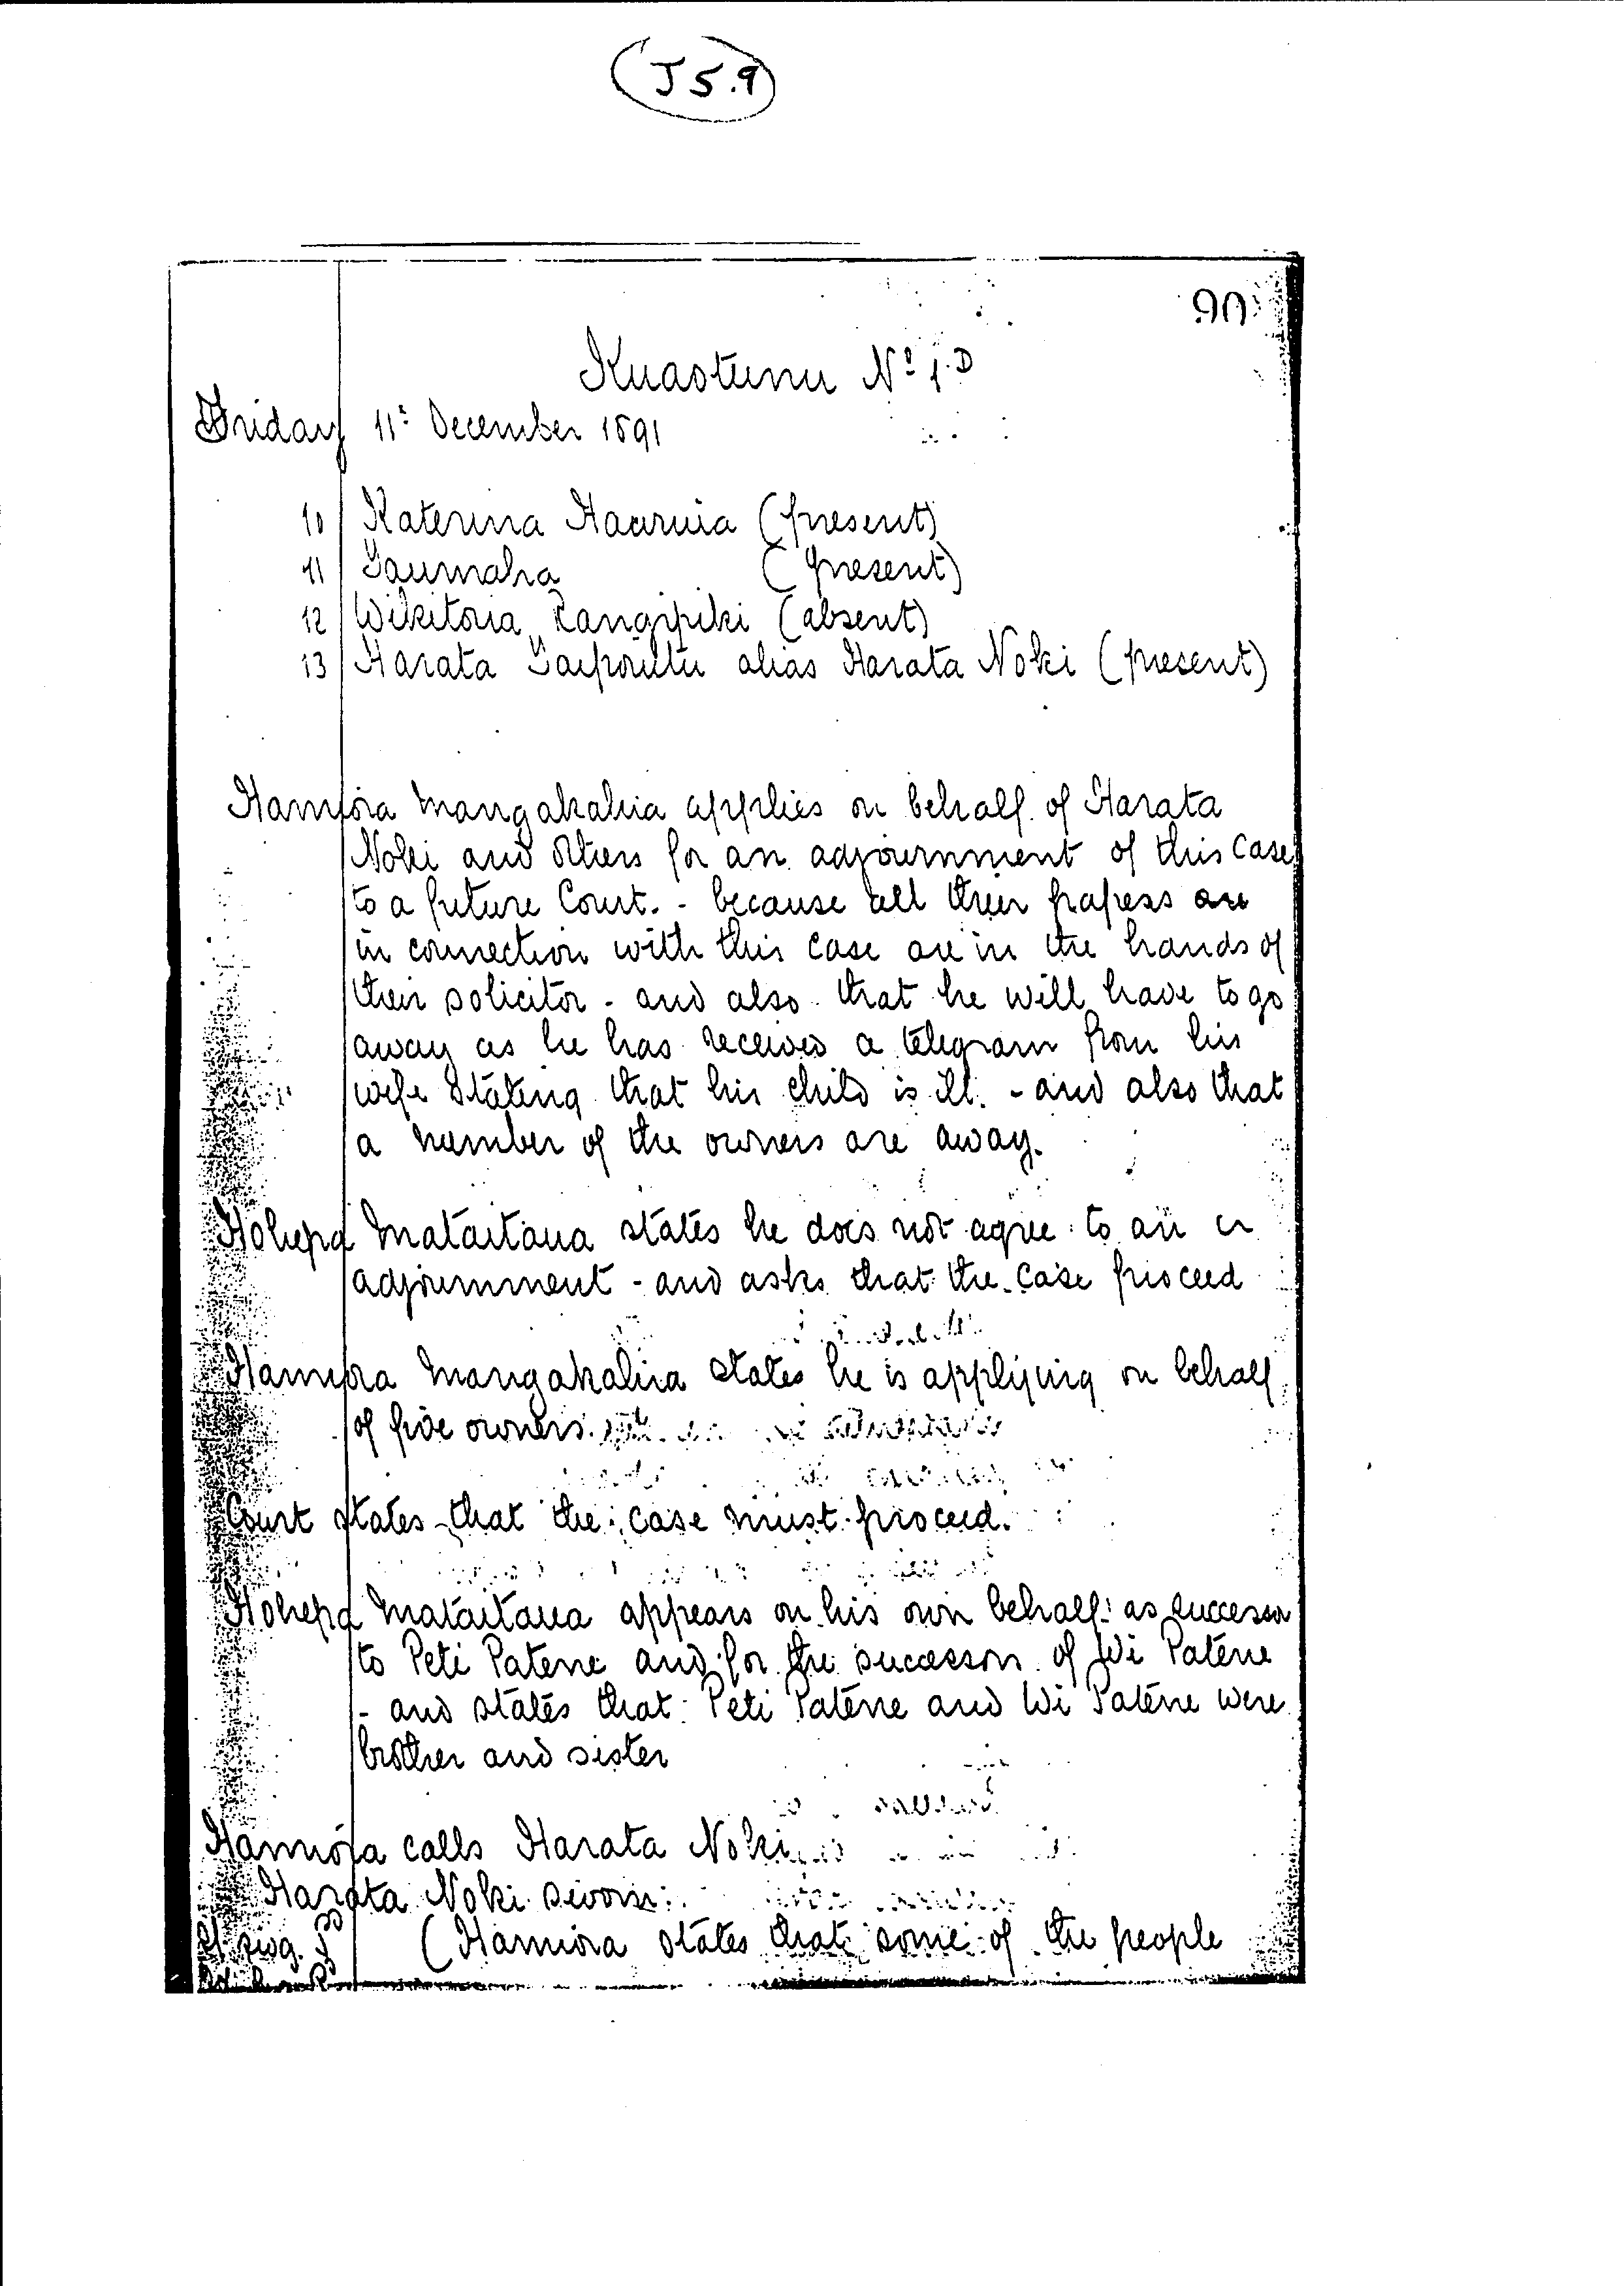 J5.9
90
Kuaotunu No 1D
Friday 11: December 1891
10 Katerina Hauruia (present)
11 Taumaha (present)
12 Wikitoria Rangipiki (absent)
13 Harata Taipoutu alias Harata Noki (present)
Hamiora Mangakahia applies on behalf of Harata
Noki and others for an adjournment of this case
to a future Court. - because all their papers are
in connection with this case are in the hands of
their solicitor - and also that he will have to go
away as he has received a telegram from his
wife stating that his child is ill. - and also that
a number of the owners are away.
Hohepa Mataitaua states he does not agree to an
adjournment - and asks that the case proceed
Hamiora Mangakahia states he is applying on behalf
of five owners.
Court states that the case must proceed.
Hohepa Mataitaua appears on his own behalf as successor
to Peti Patene and for the successors of Wi Patene
- and states that Peti Patene and Wi Patene were
brother and sister
Hamiora calls Harata Noki
Harata Noki sworn:
(Hamiora states that some of the people